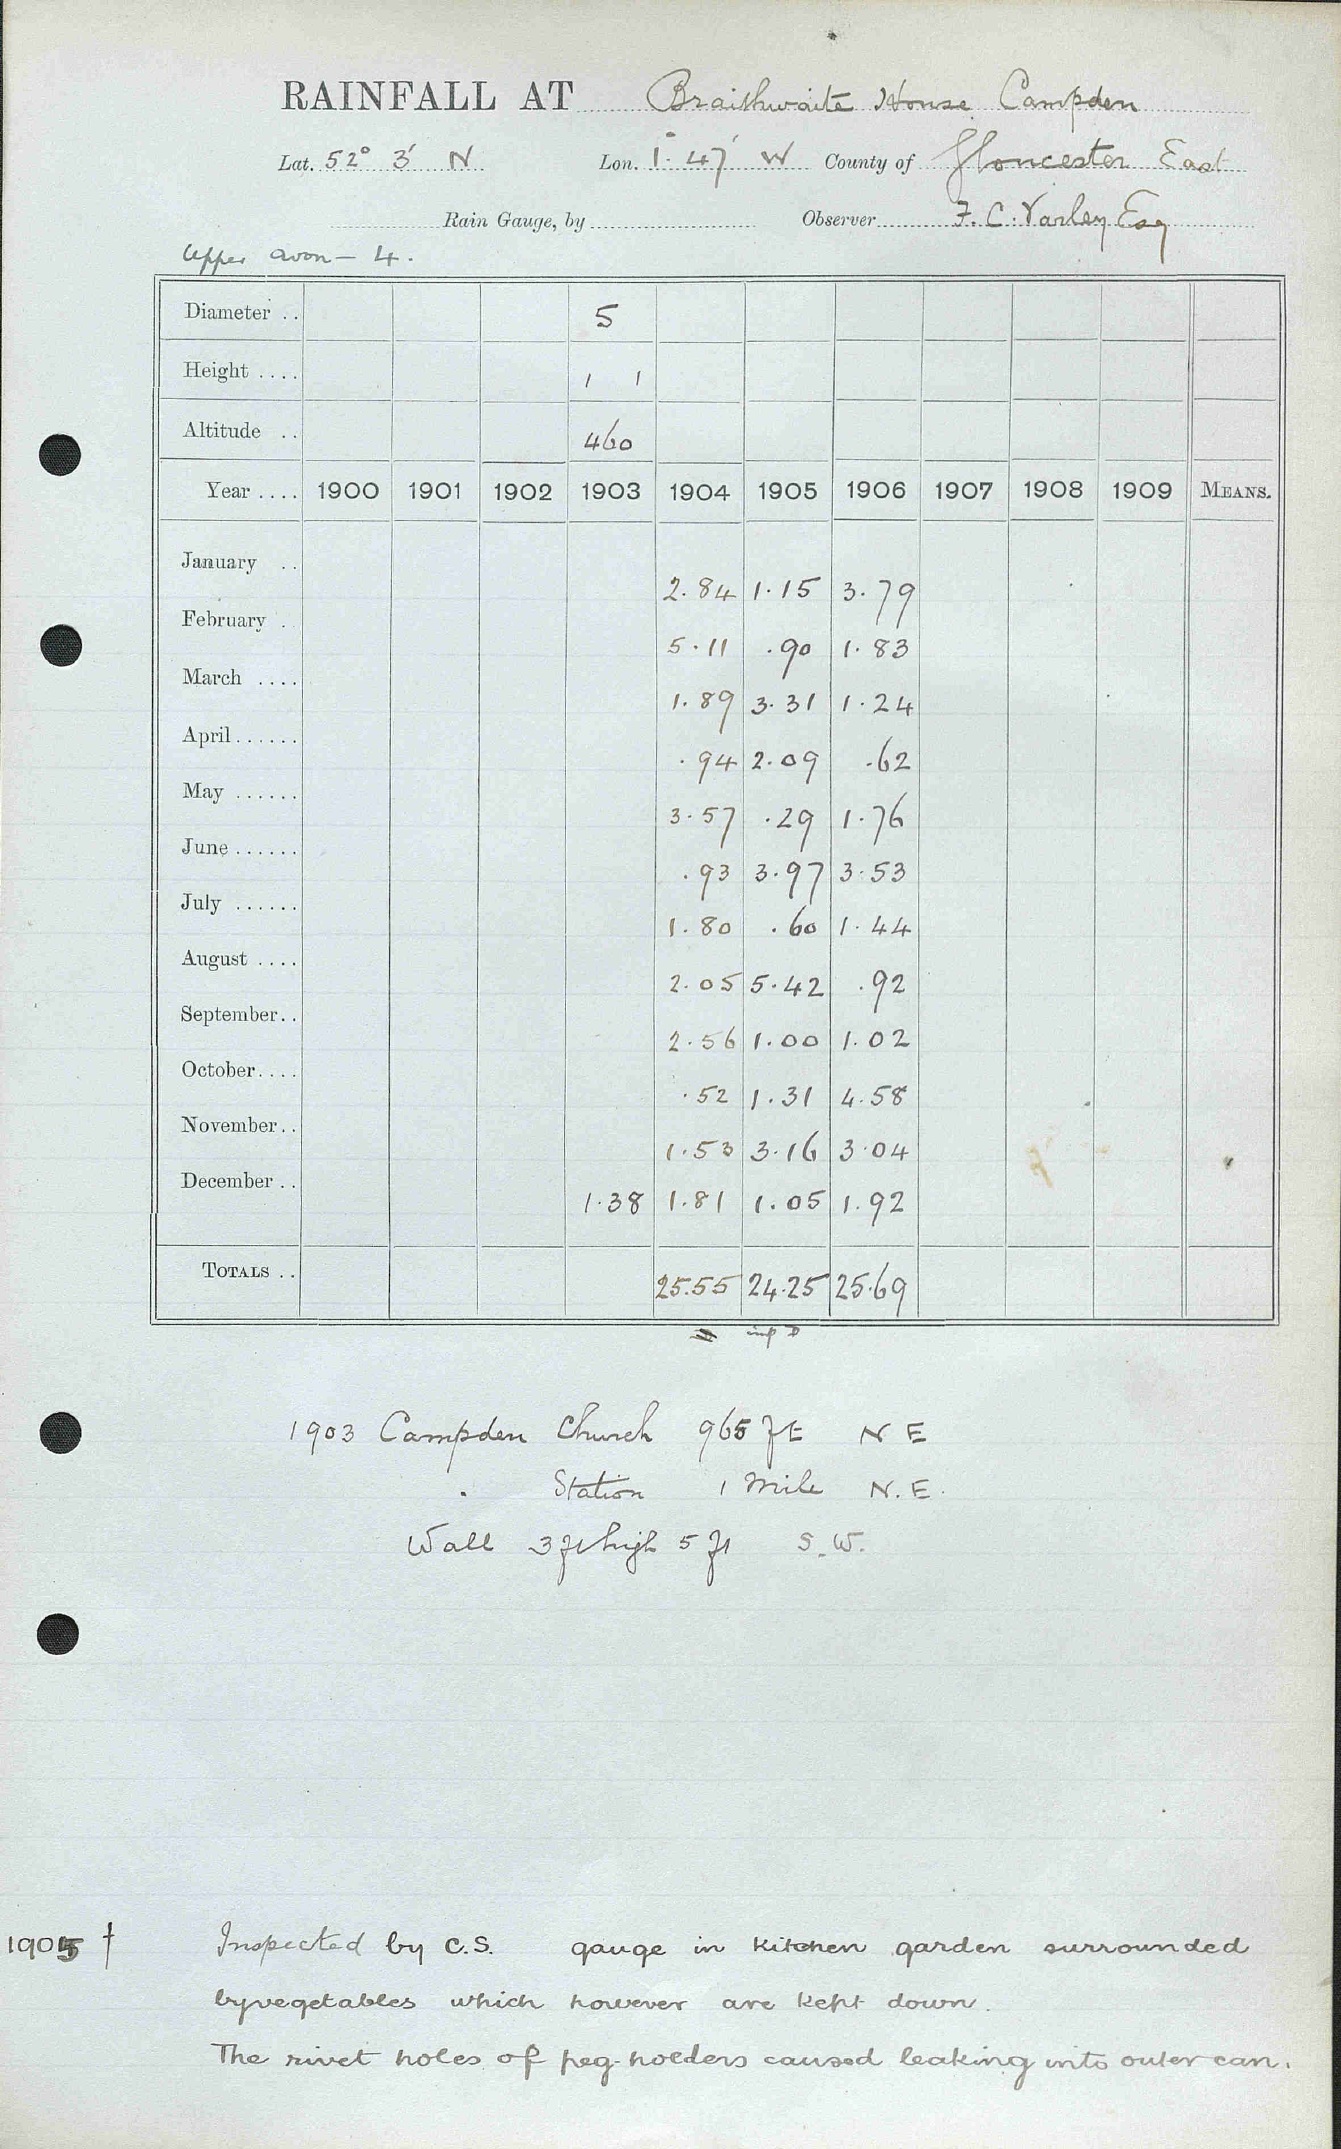 RAINFALL AT Braithwaite House Campden
Lat. 52° 3' N Lon. 1° 47' W County of Gloucester East
Rain Gauge, by Observer F. C. Varley Esq
Upper Avon - 4.
Diameter .. 5
Height .... 1 1
Altitude .. 460
Year .... 1900 1901 1902 1903 1904 1905 1906 1907 1908 1909 MEANS.
January .. 2.84 1.15 3.79
February . 5.11 .90 1.83
March .... 1.89 3.31 1.24
April...... .94 2.09 .62
May ...... 3.57 .29 1.76
June ...... .93 3.97 3.53
July ...... 1.80 .60 1.44
August .... 2.05 5.42 .92
September.. 2.56 1.00 1.02
October.... .52 1.31 4.58
November.. 1.53 3.16 3.04
December .. 1.38 1.81 1.05 1.92
TOTALS .. 25.55 24.25 25.69
1903 Campden Church 965 ft N E
. Station 1 Mile N.E.
Wall 3 ft high 5 ft S.W.
1905 † Inspected by C.S. gauge in kitchen garden surrounded
by vegetables which however are kept down.
The rivet holes of peg-holders caused leaking into outer can.